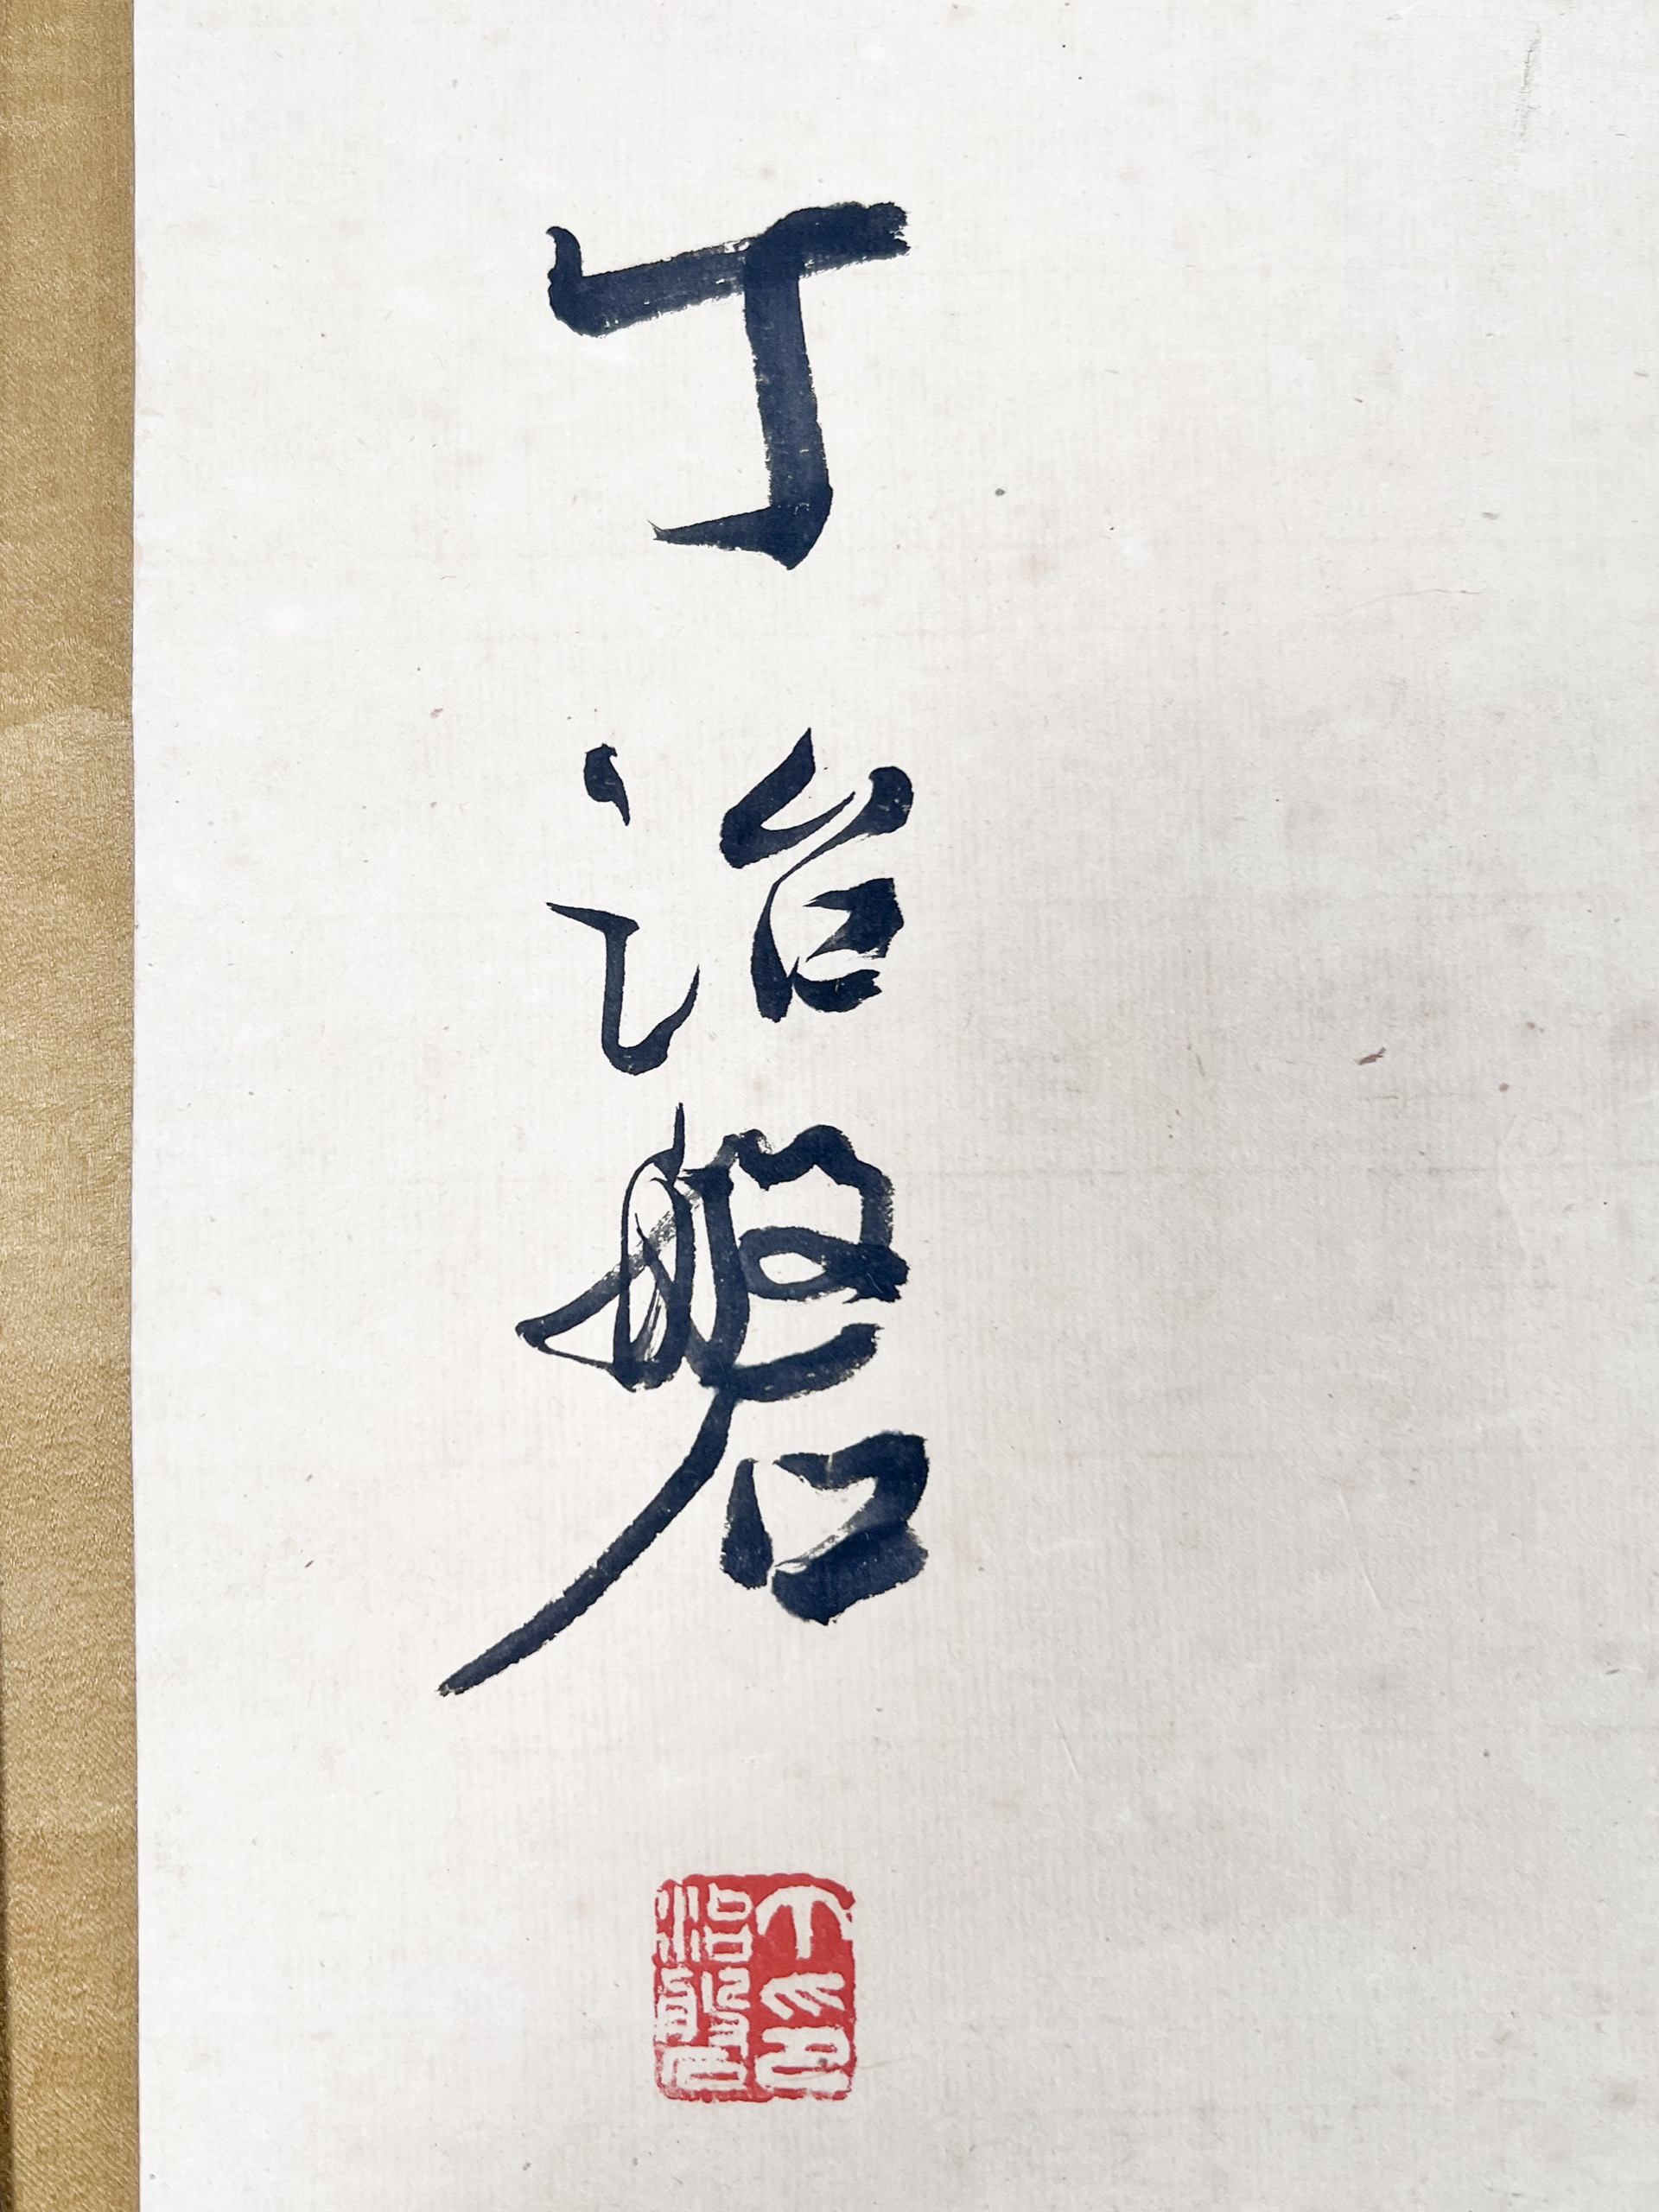 丁治磐
丁印
治磐